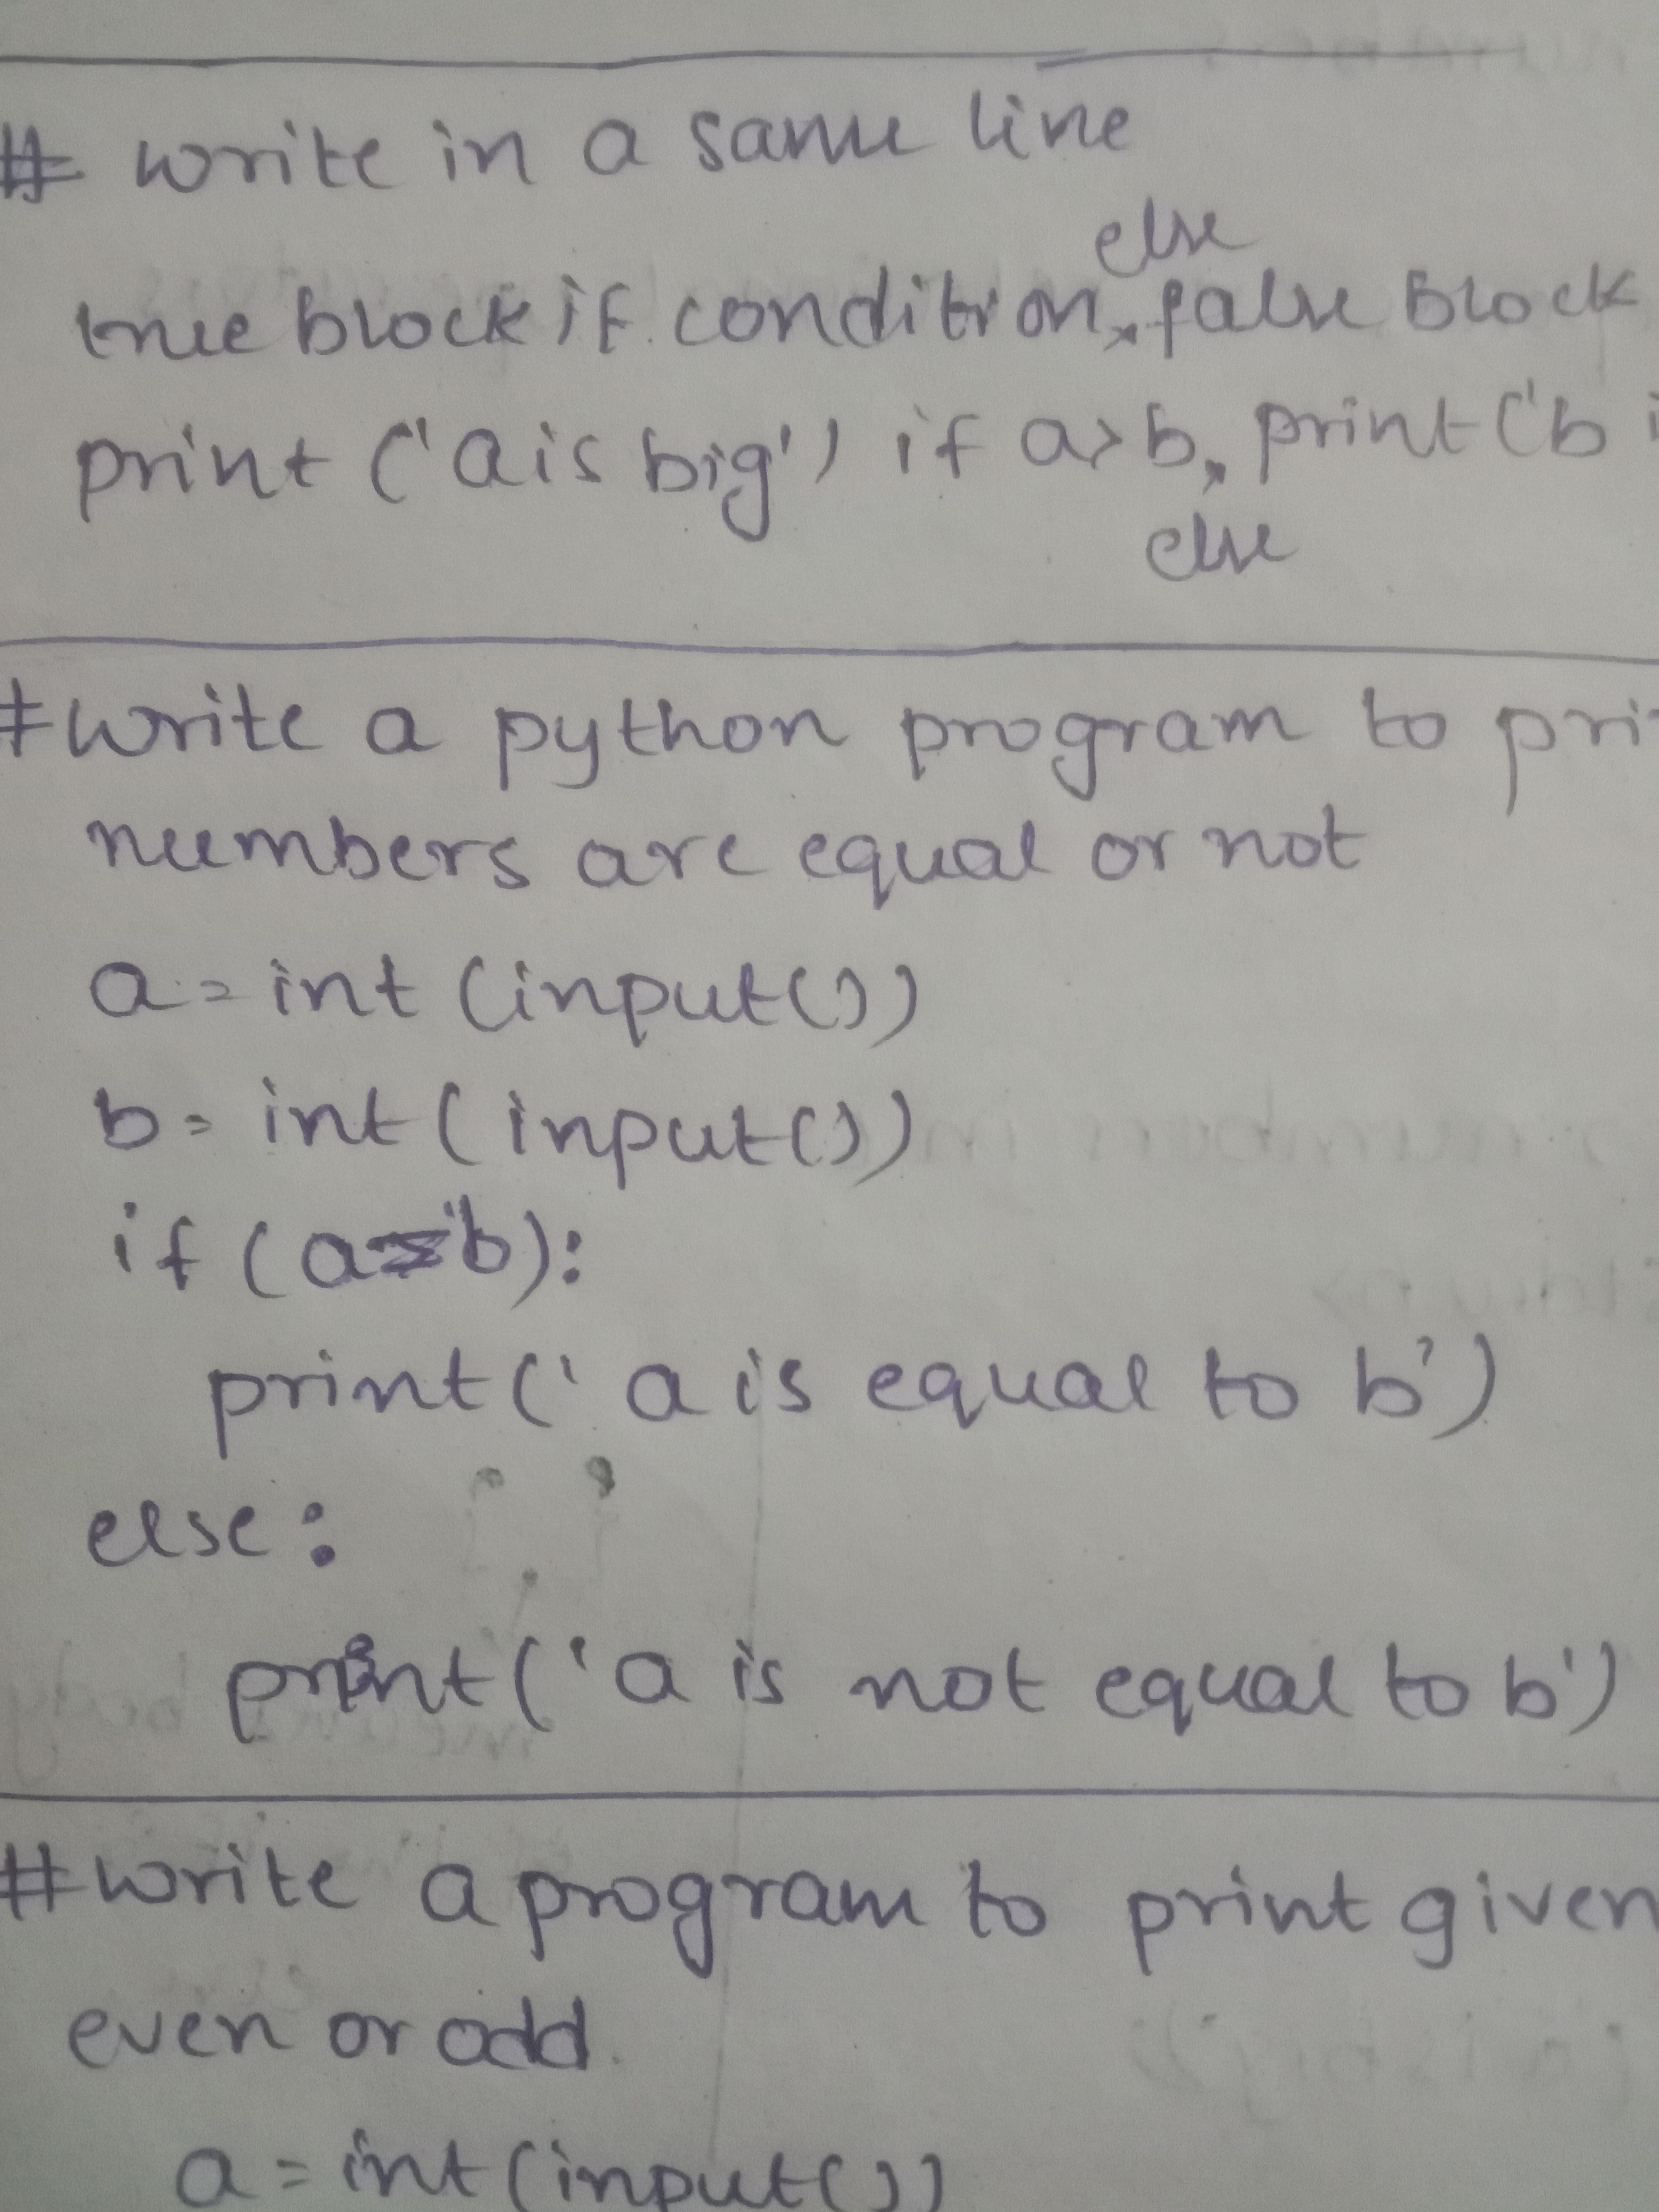 # write in a same line
else
true block if condition, false Block
print ('a is big') if a>b, print ('b i
else
#write a python program to pri
numbers are equal or not
a = int (input())
b = int (input())
if (a==b):
print(' a is equal to b')
else:
print('a is not equal to b')
#write a program to print given
even or odd.
a = int(input())